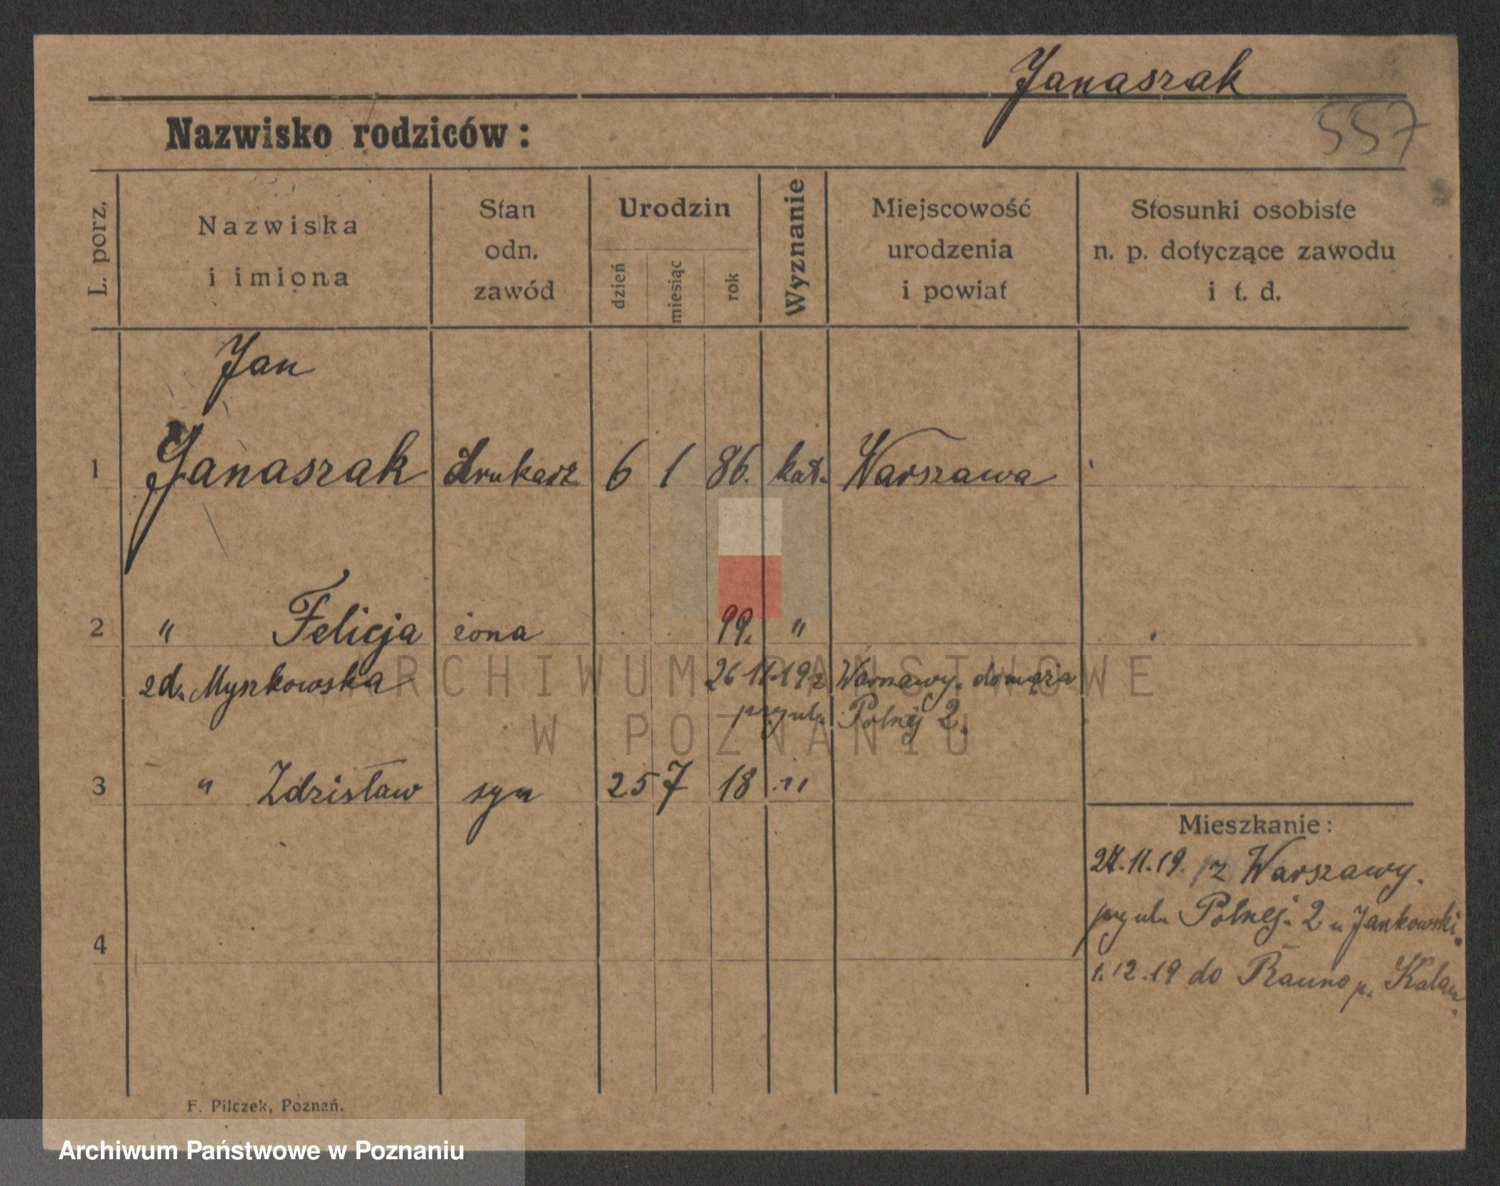 Janaszak
557
Nazwisko rodziców:
L. porz.
Nazwiska
i imiona
Stan
odn.
zawód
Urodzin
dzień
miesiąc
rok
Wyznanie
Miejscowość
urodzenia
i powiat
Stosunki osobiste
n. p. dotyczące zawodu
i t. d.
Jan
1 Janaszak drukarz 6 1 86. kat. Warszawa
2 " Felicja żona 99. "
zd. Myszkowska 26 11.19 z Warszawy. do męża
przy ul. Polnej 2.
3 " Zdzisław syn 25 7 18 "
4
Mieszkanie:
27.11.19. z Warszawy.
przy ul. Polnej 2 u Jankowski.
1.12.19 do p.
F. Pilczek, Poznań.
ARCHIWUM PAŃSTWOWE
W POZNANIU
Archiwum Państwowe w Poznaniu